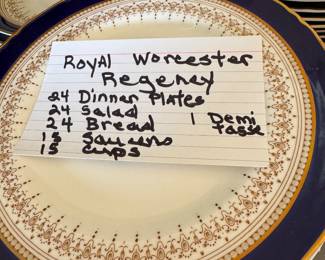 Royal Worcester
Regency
24 Dinner Plates
24 Salad
24 Bread
15 Saucers
15 Cups
1 Demi
Tasse